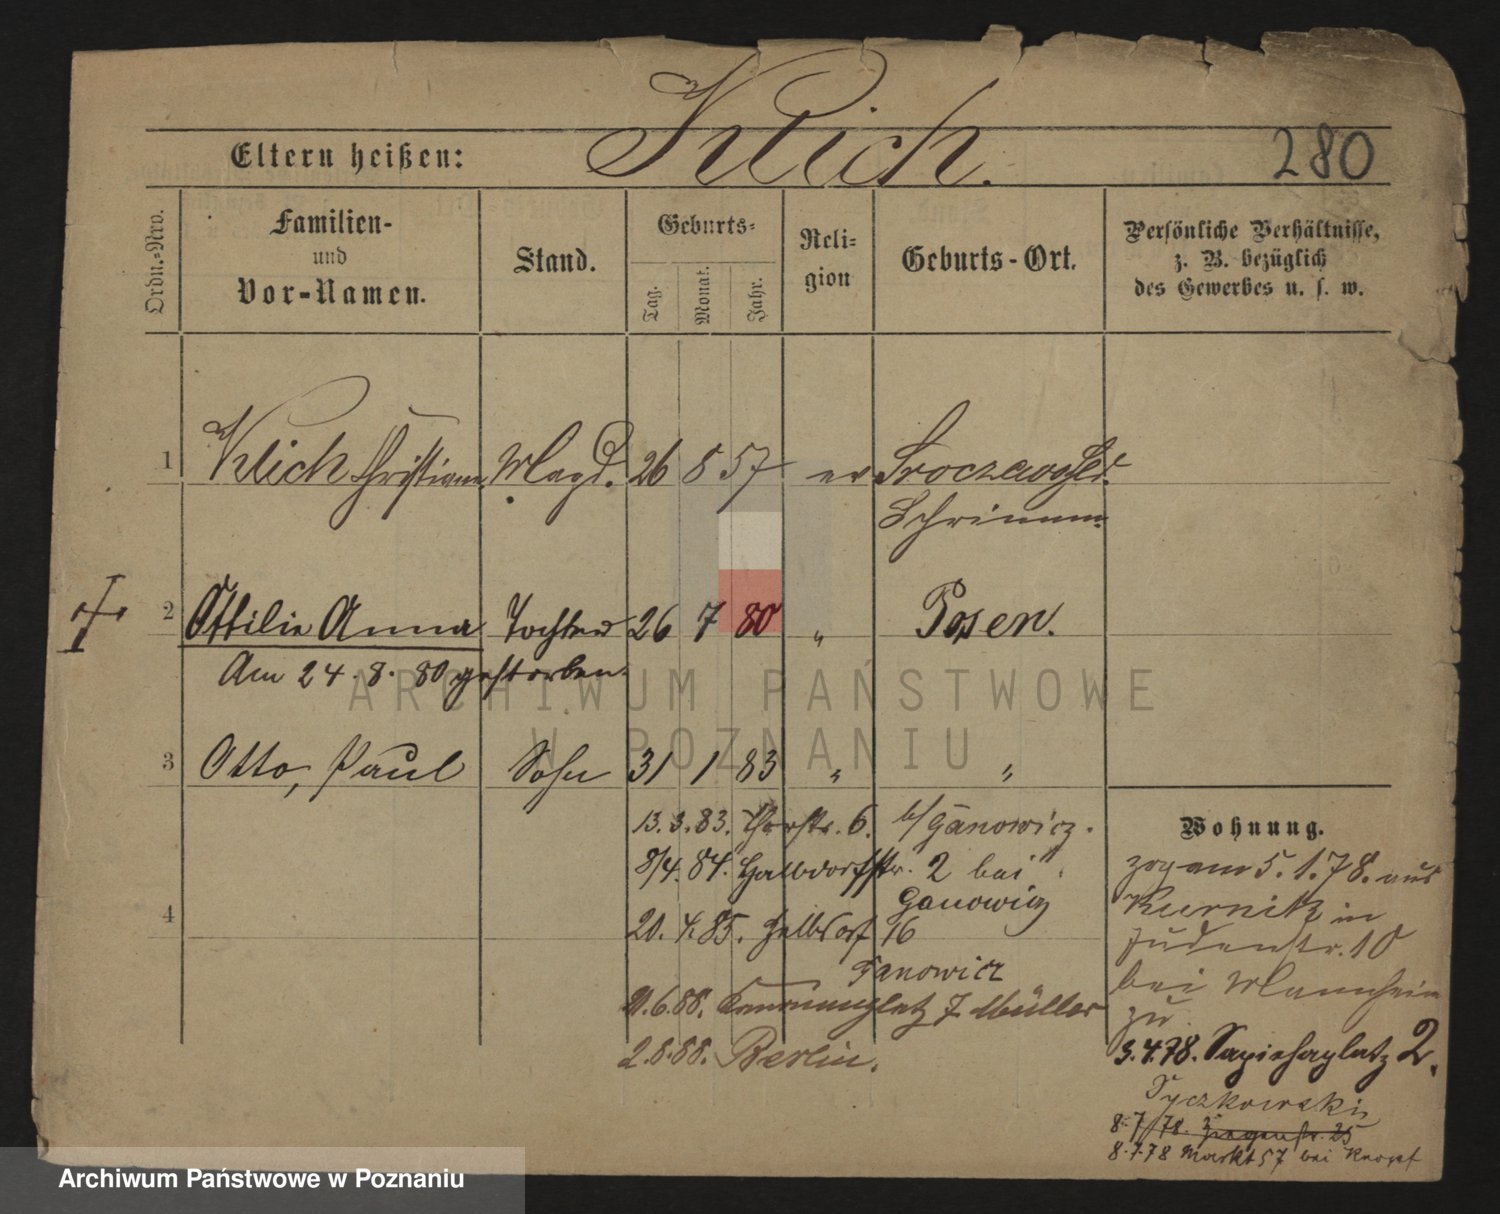 Klich.
280
Eltern heißen:
Ordn.-Nro.
Familien-
und
Vor-Namen.
Stand.
Geburts-
Tag.
Monat.
Jahr.
Reli-
gion
Geburts-Ort.
Persönliche Verhältnisse,
z. B. bezüglich
des Gewerbes u. s. w.
1 Klich Christiane Magd. 26 8 57 ev
Schrimm
2 Ottilie Anna Tochter 26 7 80 " Posen.
Am 24. 8. 80 gestorben.
3 Otto, Paul Sohn 31 1 83 " "
4
13. 3. 83. 6. b/ Ganowicz.
8/4. 84. Halbdorfstr. 2 bei
Ganowicz
20. 4. 85. Halbdorf 16
Ganowicz
6. 88. 7 Müller
2. 8. 88. Berlin.
Wohnung.
zog am 5. 1. 78. aus
Kurnik in
Judenstr. 10
bei Mannheim
zu
3. 4. 78. Sapiehaplatz 2.
Tyczkowski
8. 7. 78. Ziegenstr. 25
8. 7. 78 Markt 57 bei Knopf
ARCHIWUM PAŃSTWOWE
W POZNANIU
Archiwum Państwowe w Poznaniu